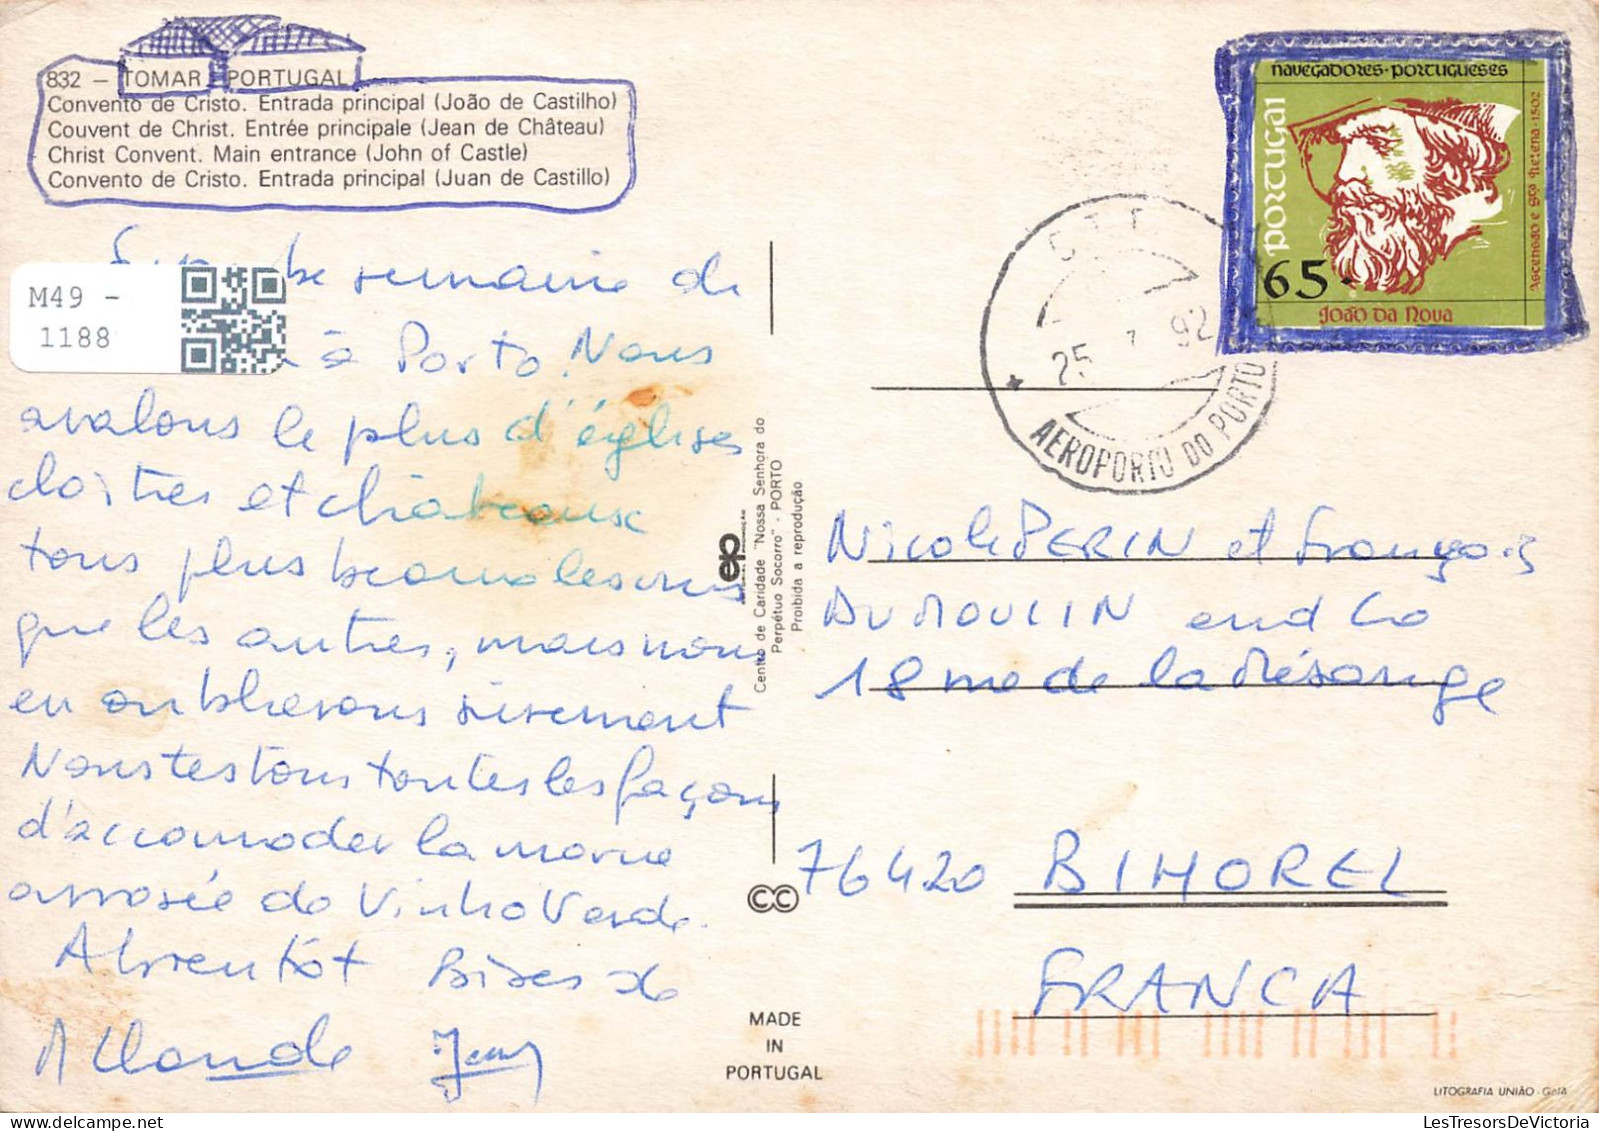 832 – TOMAR – PORTUGAL
Convento de Cristo. Entrada principal (João de Castilho)
Couvent de Christ. Entrée principale (Jean de Château)
Christ Convent. Main entrance (John of Castle)
Convento de Cristo. Entrada principal (Juan de Castillo)
M49 -
1188
semaine de
à Porto. Nous
avalons le plus d'églises
cloitres et châteaux
tous plus beaux les uns
que les autres, mais nous
en oublierons sûrement
Nous testons toutes les façons
d'accomoder la morue
arrosée de Vinho Verde.
A bientôt Bises de
Claude Jean
Centro de Caridade "Nossa Senhora do
Perpétuo Socorro" - PORTO
Proibida a reprodução
MADE
IN
PORTUGAL
navegadores·portugueses
portugal
65·
João da Nova
Ascensão e Stª Helena·1502
CTT
25 92
AEROPORTO DO PORTO
Nicole PERIN et François
DUMOULIN and Co
18 rue de la Mésange
76420 BIHOREL
FRANCA
LITOGRAFIA UNIÃO - GAIA
LesTresorsDeVictoria